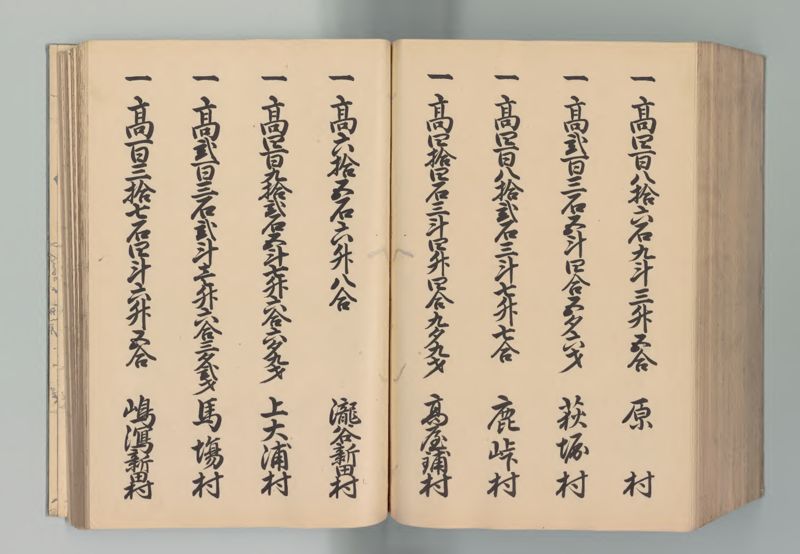 一 高四百八拾六石九斗三升五合 原村
一 高弐百三石五斗四合五夕六才 萩堀村
一 高四百八拾弐石三斗七升七合 鹿峠村
一 高四拾四石三斗四升四合九夕九才 高屋鋪村
一 高六拾五石六升八合 瀧谷新田村
一 高四百九拾弐石五斗七升六合六夕九才 上大浦村
一 高弐百三石弐斗壱升六合三夕弐才 馬場村
一 高百三拾七石四斗六升五合 嶋潟新田村